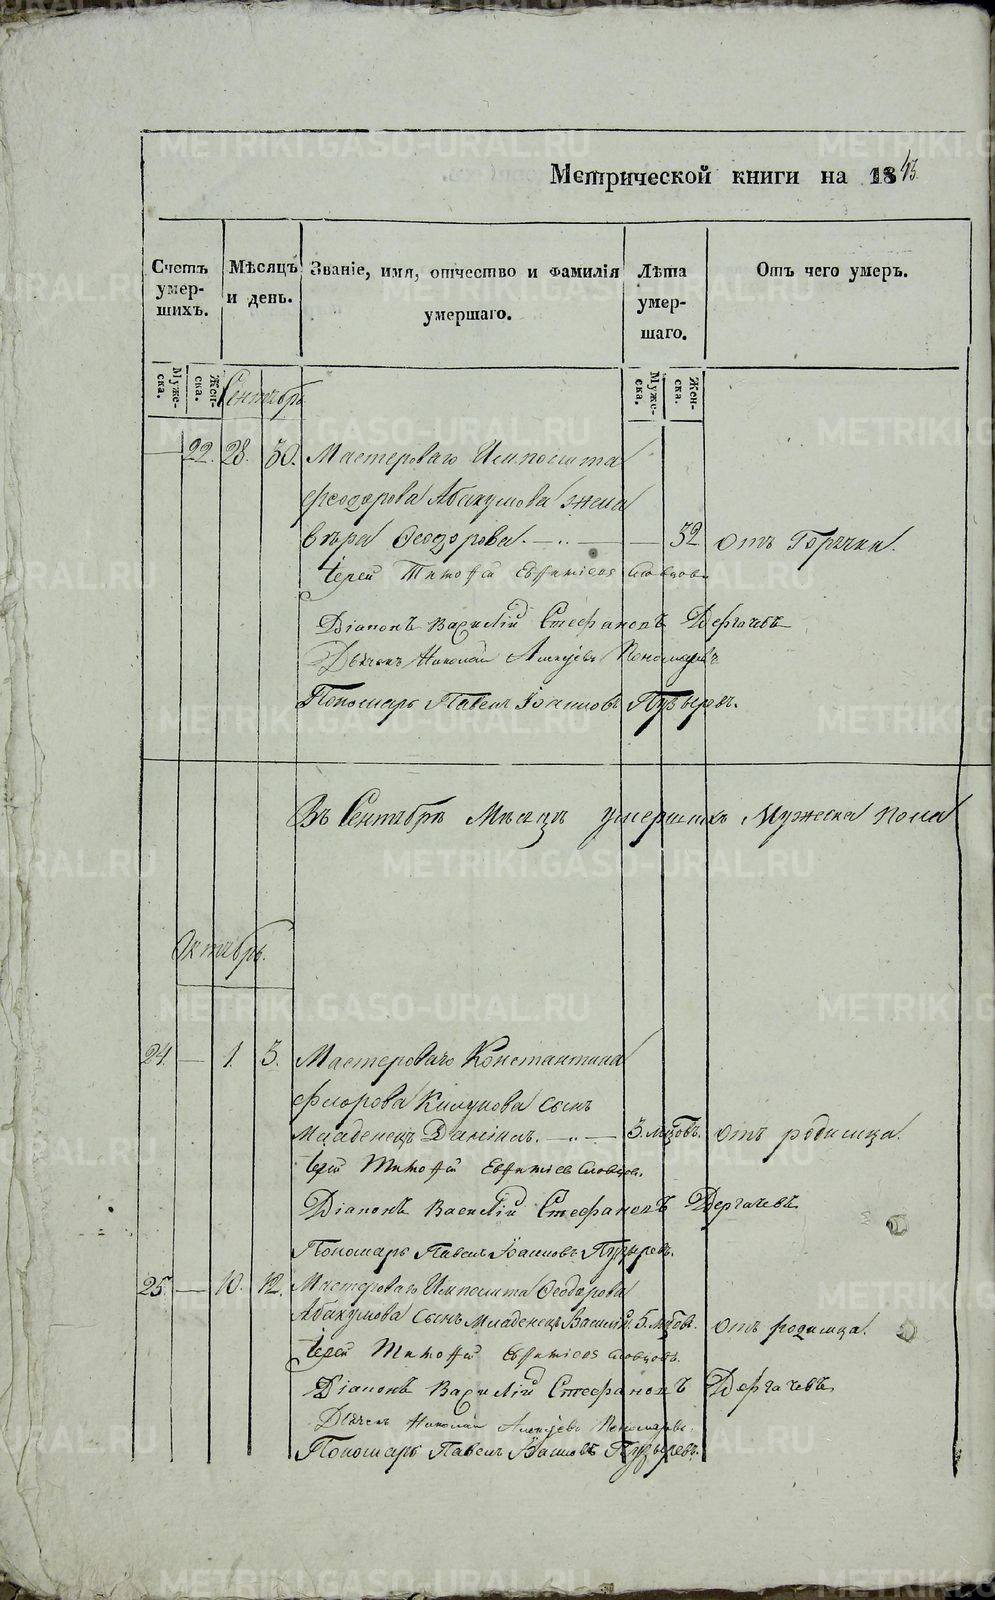 Метрической книги на 1843.
Счетъ умер- шихъ.
Мѣсяцъ и день.
Званіе, имя, отчество и фамилія умершаго.
Лѣта умер- шаго.
Отъ чего умеръ.
Муже- ска.
Жен- ска.
Сентябрь
Муже- ска.
Жен- ска.
— 22. 28. 30. Мастероваго Ипполита
Феодорова Абакумова жена
Вѣра Феодорова. — 32 отъ Горячки.
Іерей Тимоѳей Евѳиміевъ Словцовъ
Діаконъ Василій Стефановъ Дергачевъ
Дьячекъ Николай Алексѣевъ Пономаревъ
Пономарь Павелъ Іоанновъ Пузыревъ.
Въ Сентябрѣ Мѣсяцѣ умершихъ Мужеска пола
Октябрь.
24. — 1. 3. Мастероваго Константина
Флорова сынъ
Младенецъ Даніилъ. — 3. мѣсцовъ. отъ родимца.
Іерей Тимоѳей Евѳиміевъ Словцовъ.
Діаконъ Василій Стефановъ Дергачевъ
Пономарь Павелъ Іоанновъ Пузыревъ.
25. — 10. 12. Мастероваго Ипполита Феодорова
Абакумова сынъ Младенецъ Василій. 5. мѣсцовъ. отъ родимца.
Іерей Тимоѳей Евѳиміевъ Словцовъ.
Діаконъ Василій Стефановъ Дергачевъ
Дьячекъ Николай Алексѣевъ Пономаревъ.
Пономарь Павелъ Іоанновъ Пузыревъ.
METRIKI.GASO-URAL.RU